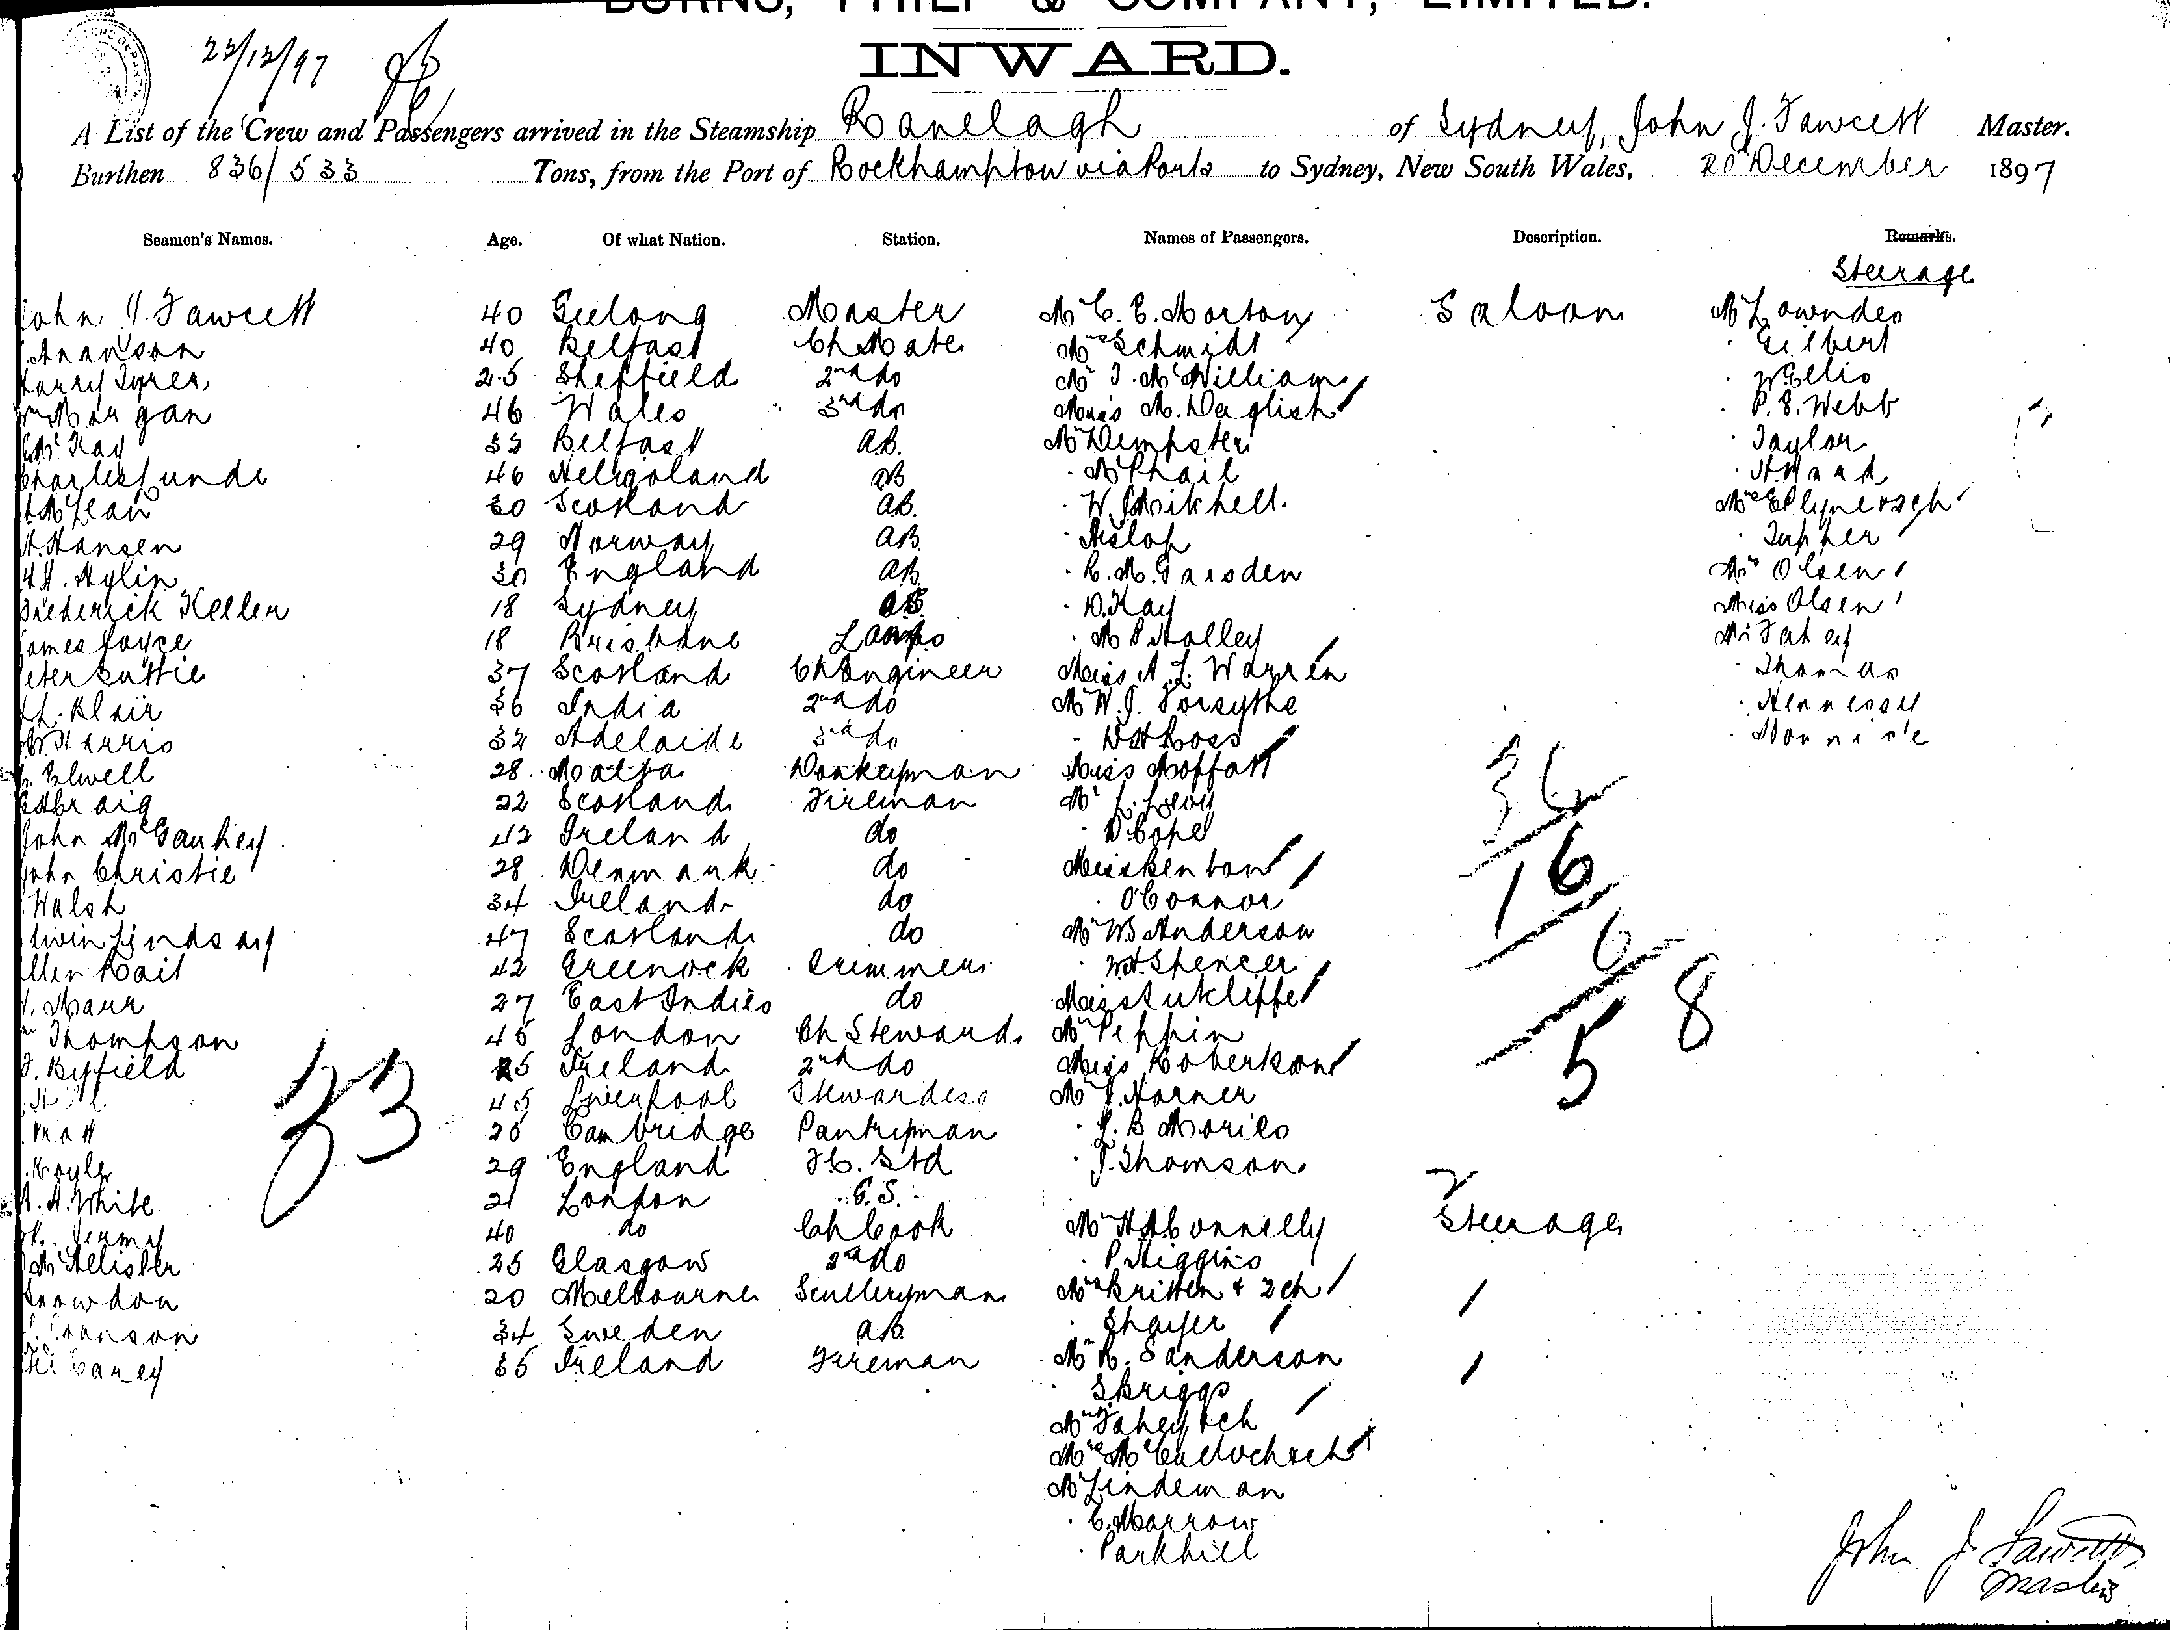 BURNS, PHILP & COMPANY, LIMITED.
INWARD.
22/12/97
A List of the Crew and Passengers arrived in the Steamship Ranelagh of Sydney, John J. Fawcett Master.
Burthen 836/533 Tons, from the Port of Rockhampton via Ports to Sydney, New South Wales, 20 December 1897
Seamen's Names. Age. Of what Nation. Station. Names of Passengers. Description. Remarks.
Steerage
John J Fawcett 40 Geelong Master Mr C. E. Morton Saloon Mr Lowndes
40 Belfast Ch Mate Mrs Schmidt Gilbert
Harry Tyrer 25 Sheffield 2nd do Mr J. McWilliam W Ellis
Wm Morgan 46 Wales 3rd do Miss M. Daglish P. S. Webb
McKay 33 Belfast AB. Mr Dempster Taylor
Charles Junde 46 Heligoland AB McPhail
McLean 30 Scotland AB. W. J Mitchell.
A. Hansen 29 Norway AB. Hislop Tupper
Hylin 30 England AB C. M. Garsden Mrs Olsen
Frederick Keller 18 Sydney AB D. Kay Miss Olsen
James Joyce 18 Brisbane Lamps M P Holley Mr Fahey
Peter Suttie 37 Scotland Ch Engineer Miss A. L. Warren Thomas
Blair 36 India 2nd do Mr W. J. Forsythe Hennessy
Harris 32 Adelaide 3rd do Ross
Elwell 28 Malta Donkeyman Miss Moffatt
Craig 22 Scotland Fireman Mr L. Levy
John McGaughey 42 Ireland do D Cope
John Christie 28 Denmark do Miss Renton
Walsh 34 Ireland do O'Connor
Edwin Lindsay 47 Scotland do Mr WB Anderson
Allen Rait 42 Greenock Trimmers Spencer
Marr 27 East Indies do Miss Sutcliffe
Wm Thompson 45 London Ch Steward. Mr Peppin
J. Byfield 25 Ireland 2nd do Miss Robertson
45 Liverpool Stewardess Mr J. Horner
26 Cambridge Pantryman L. B Morris
Royle 29 England F.C. Std J. Thomson
A. A. White 21 London G. S.
40 do Ch Cook Mr Connelly Steerage
McAlister 25 Glasgow 2nd do P. Higgins
Snowdon 20 Melbourne Sculleryman Mrs Britten + 2 ch
Johnson 34 Sweden AB Shayer
Carey 35 Ireland Fireman Mr R. Sanderson
Skriggs
Mrs Fahey & ch
Mrs McCulloch & ch
Mr Lindeman
C. Marrow
Parkhill
33
36
16
6
8
5
John J. Fawcett
Master